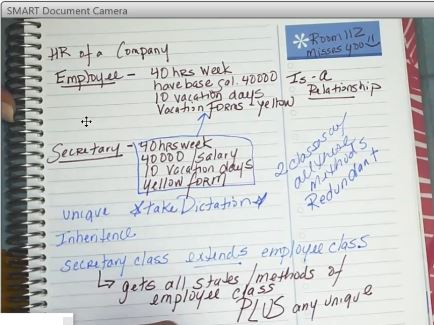 SMART Document Camera
HR of a Company
Employee - 40 hrs week
have base sal. 40000
10 vacation days
Vacation FORMS - yellow
* Room 112
misses you!!
Is-a
Relationship
Secretary - 40 hrs week
40000 / salary
10 Vacation days
yellow form
2 classes w/
all these
methods
Redundant
unique *take Dictation*
Inheritence
secretary class extends employee class
↳ gets all states/methods of
employee class
PLUS any unique